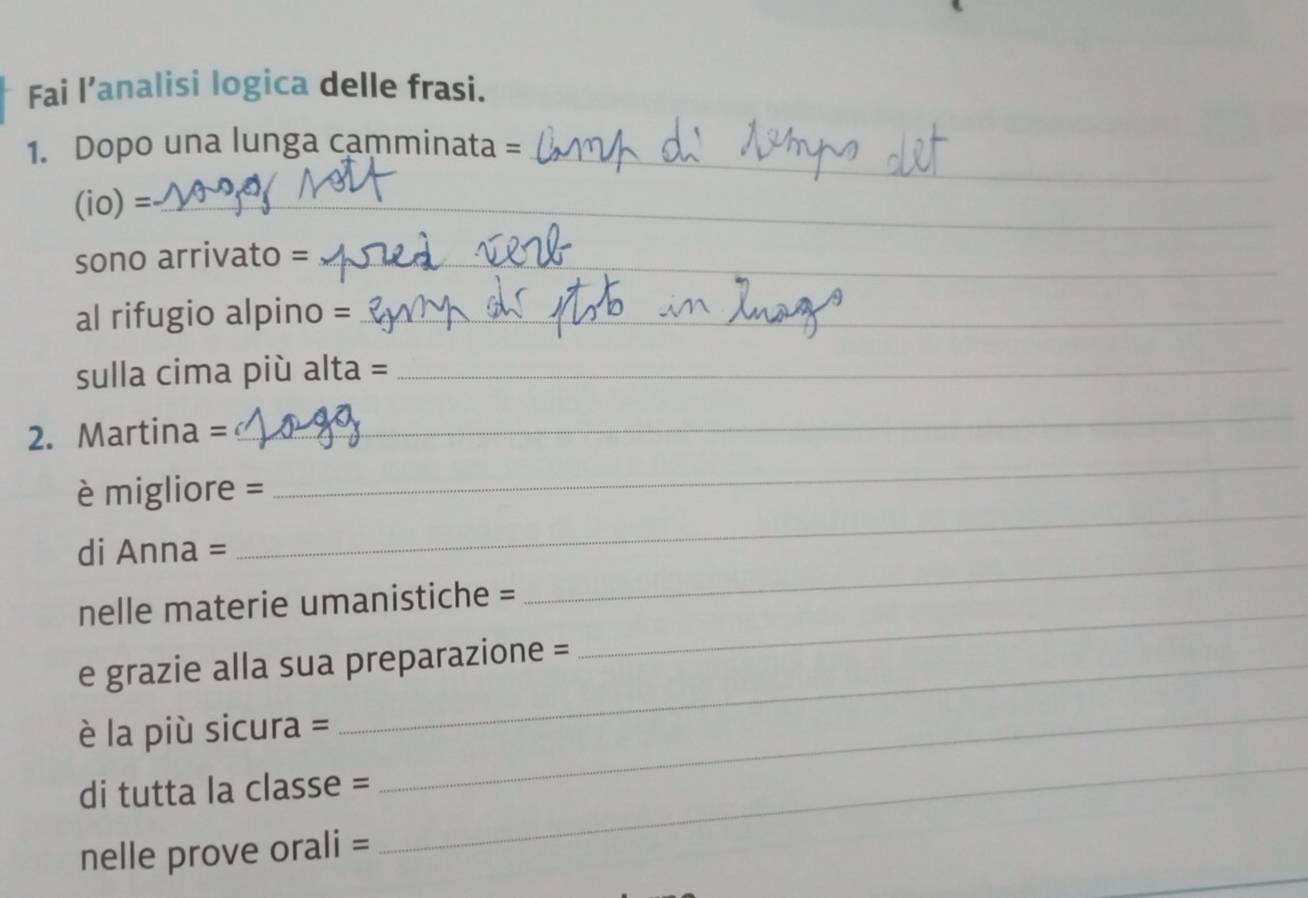 Fai l'analisi logica delle frasi.
1. Dopo una lunga camminata = Comp di tempo det
(io) = sogg sott
sono arrivato = pred verb
al rifugio alpino = comp di stato in luogo
sulla cima più alta =
2. Martina = sogg
è migliore =
di Anna =
nelle materie umanistiche =
e grazie alla sua preparazione =
è la più sicura =
di tutta la classe =
nelle prove orali =